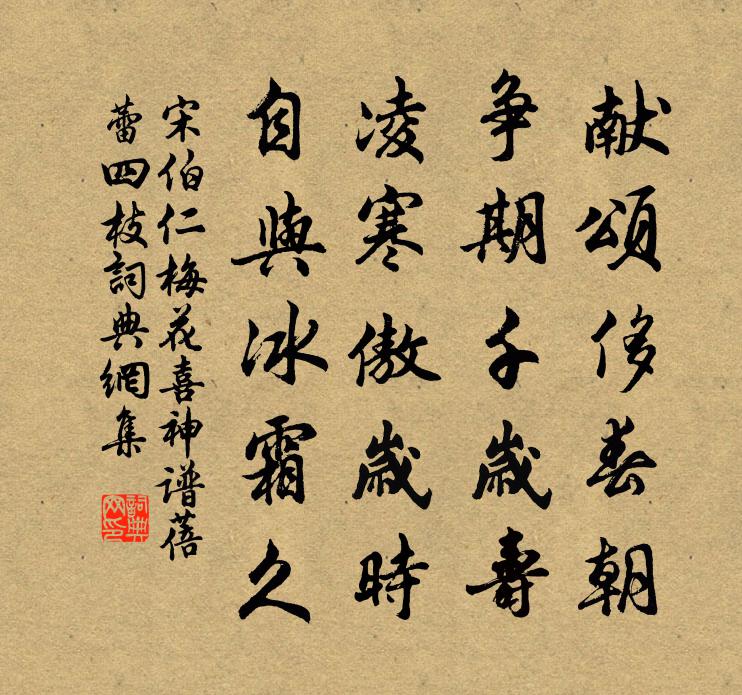 献頌侈春朝
争期千歳壽
凌寒傲歳時
自與冰霜久
宋伯仁梅花喜神谱蓓
蕾四枝詞典網集
詞典網印